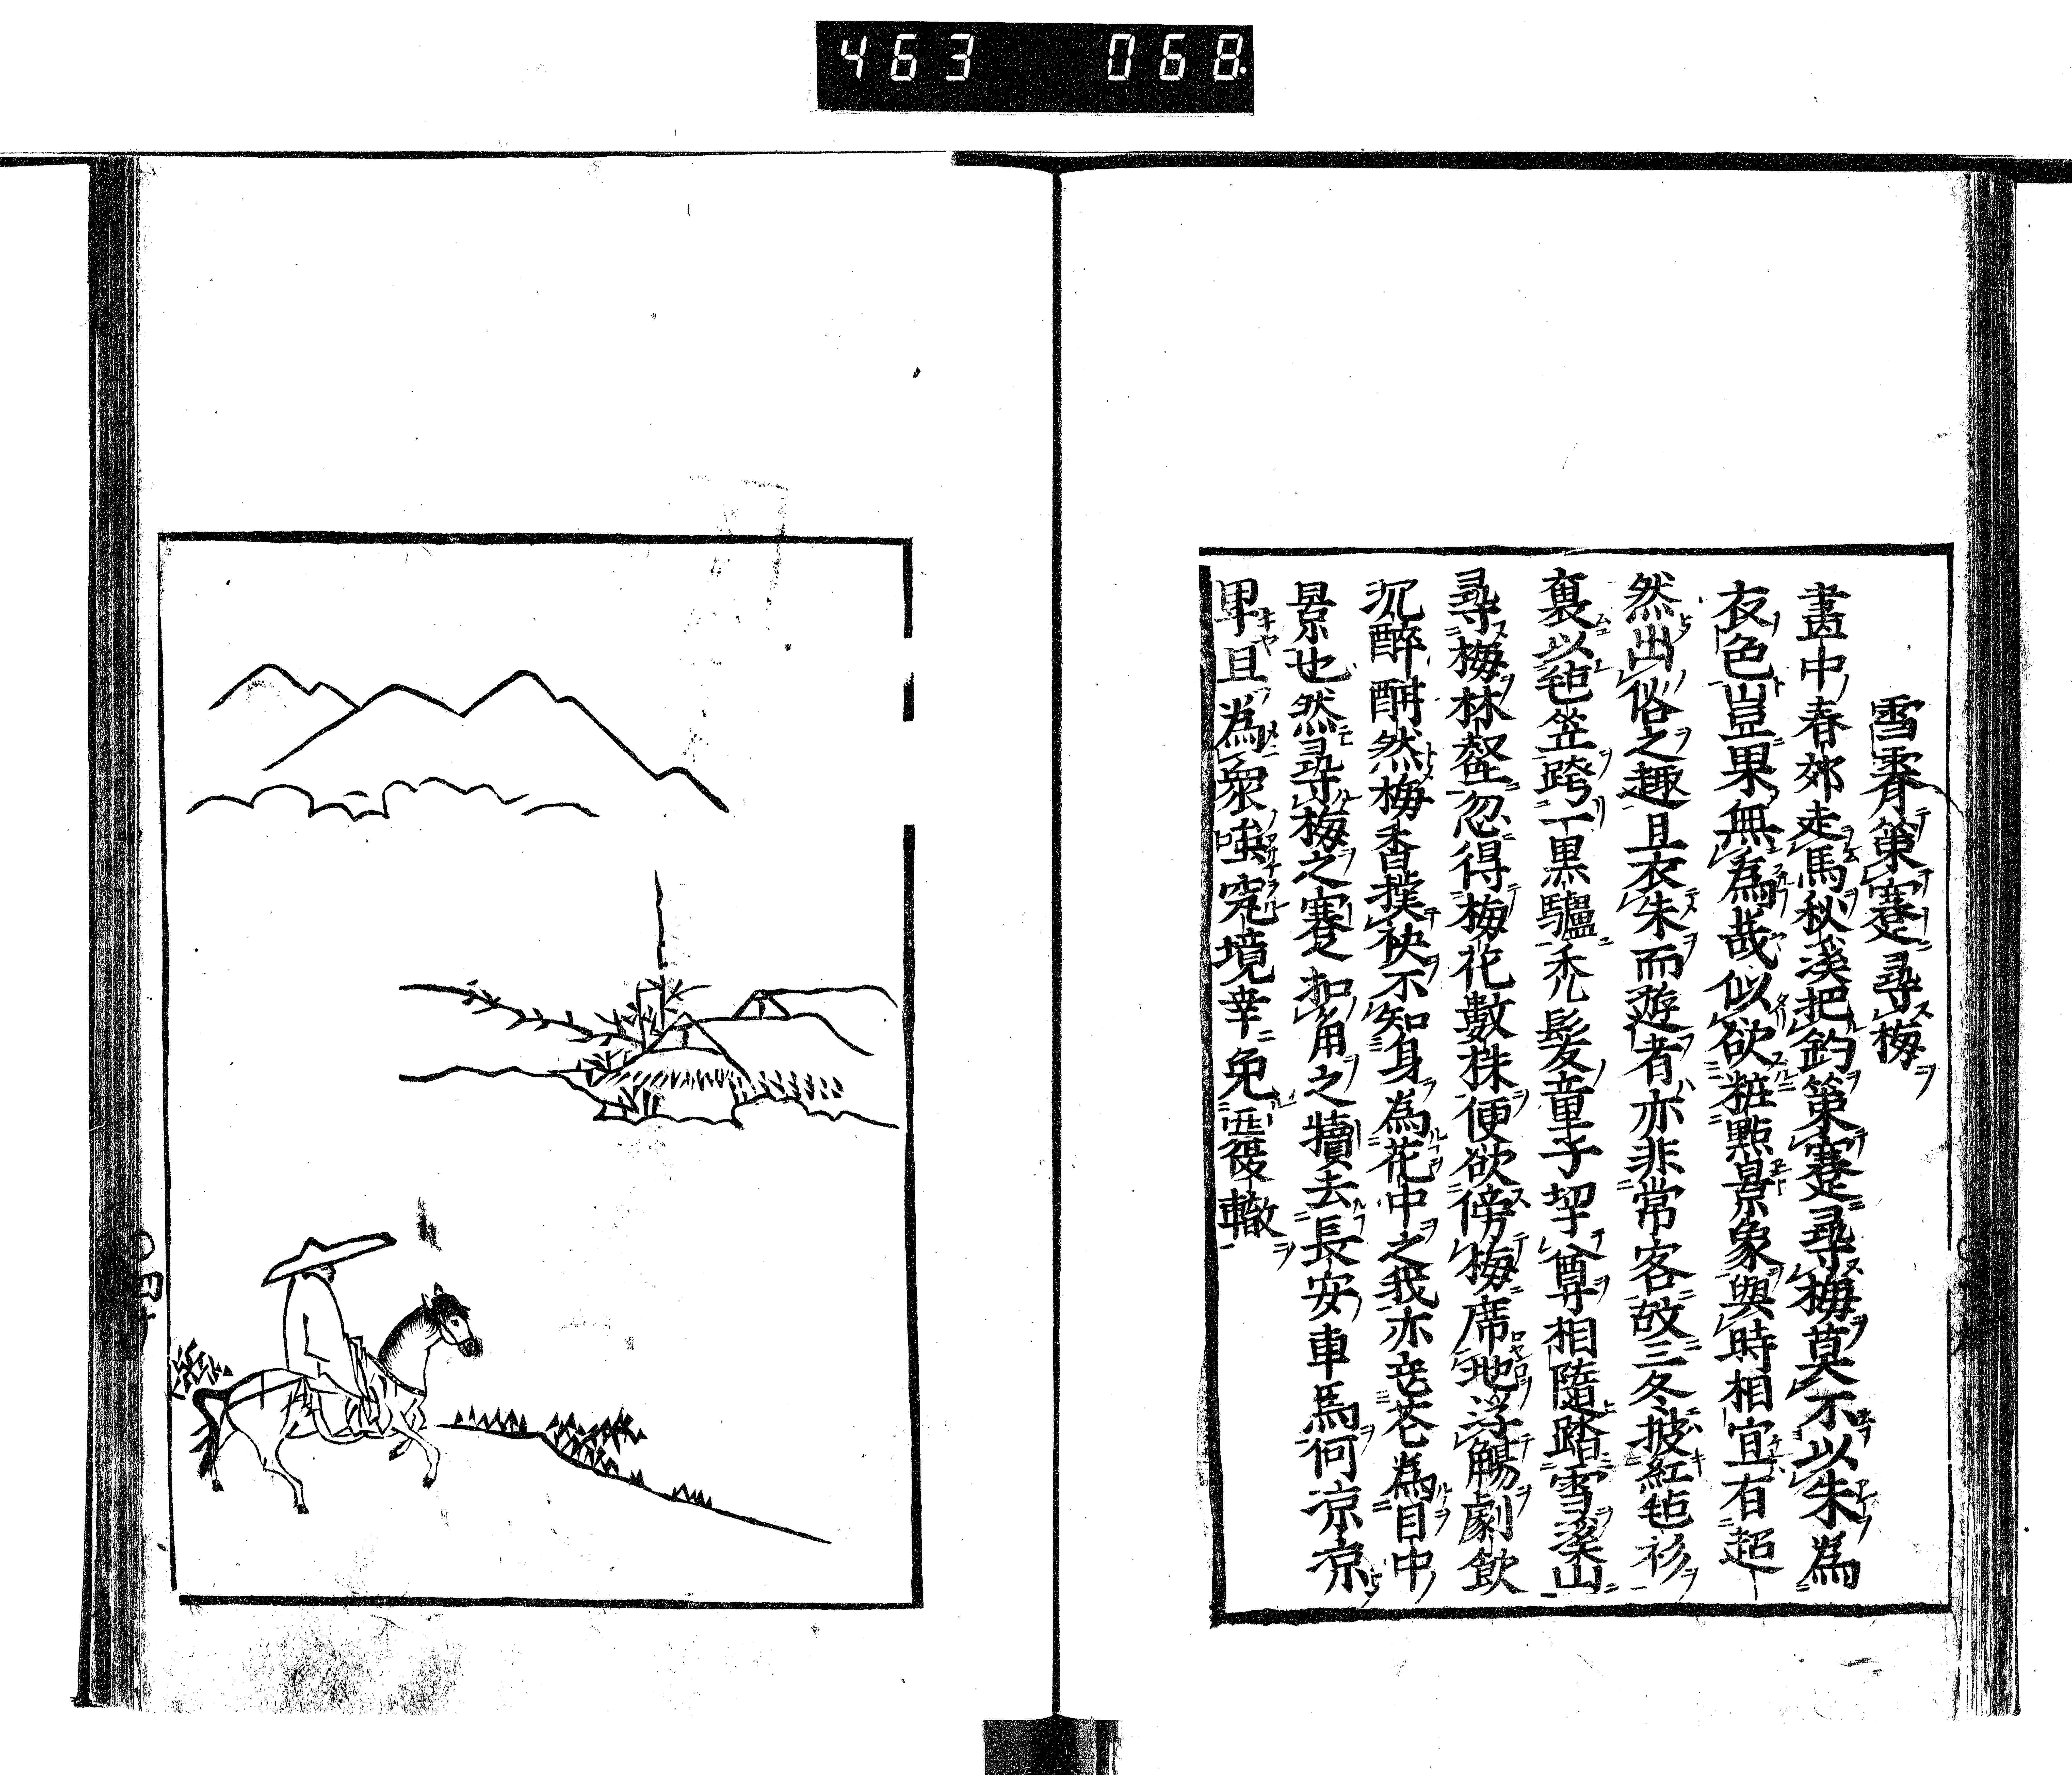 463 068
雪霽策蹇尋梅
畫中春郊走馬秋溪把釣策蹇尋梅莫不以朱為
衣色豈果無為哉似欲粧點景象與時相宜有超
然出俗之趣且衣朱而遊者亦非常客故三冬披紅毡衫
裹以毡笠跨一黒驢禿髮童子挈尊相隨踏雪溪山
尋梅林壑忽得梅花數株便欲傍梅席地浮觴劇飲
沉醉酣然梅香撲袂不知身為花中之我亦忘花為目中
景也然尋梅之蹇扣角之犢去長安車馬何凉凉
卑且為衆嗤究境幸免覆轍